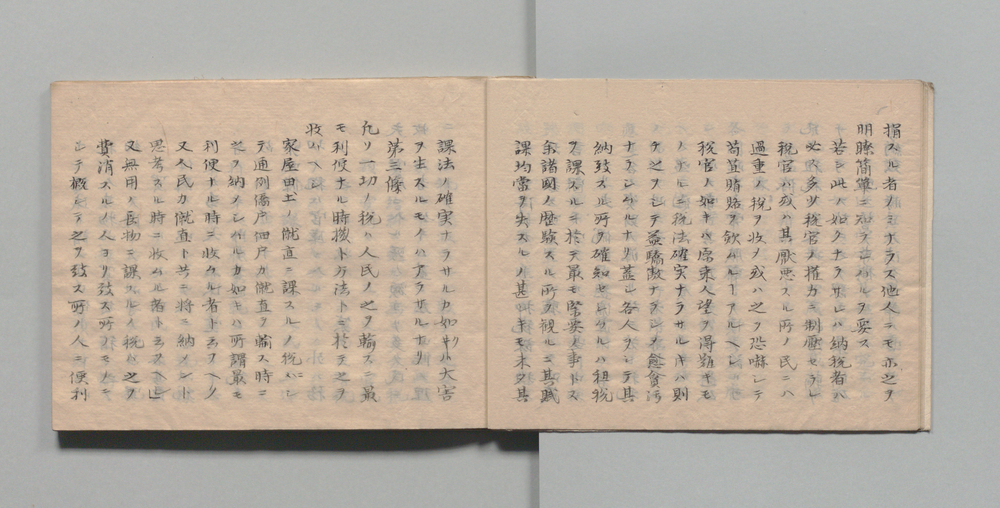 損スル者ノミナラス他人ニモ亦之ヲ
明瞭簡單ニ知ラシムルヲ要ス
若シ此ノ如クナラサレハ納税者ハ
必ス多少税官ノ權力ニ制壓セラレ
税官ハ或ハ其厭悪スル所ノ民ニハ
過重ノ税ヲ収メ或ハ之ヲ恐嚇シテ
苟且賄賂ヲ飲ムルアルヘシ
税官ノ如キハ原来人望ヲ得難キモ
ノナルニ税法確実ナラサルキハ則
チ之ヲシテ益驕傲ナラシメ愈貪汚
ナラシムルナリ蓋シ各人ヲシテ其
納致スル所ヲ確知セシムルハ租税
ヲ課スルニ於テ最モ緊要ノ事トス
余諸國ノ歴験スル所ヲ観ルニ其賦
課均當ヲ失スルノ甚シキモ未タ其
課法ノ確実ナラサルカ如キノ大害
ヲ生スルモノハアラサルナリ
第三條
凡ソ一切ノ税ハ人民ノ之ヲ輸スニ最
モ利便ナル時機ト方法トニ於テ之ヲ
収ムヘシ
家屋田土ノ僦直ニ課スルノ税ハ
テ通例僑户佃户カ僦直ヲ輸ス時ニ
之ヲ納メシムルカ如キハ所謂最モ
利便ナル時ニ収ムル者ト云フヘク
又人民カ僦直ト共ニ将ニ納メント
思考スル時ニ収ムル者ト云フヘシ
又無用ノ長物ニ課スルノ税ハ之ヲ
費消スルノ人ヨリ致ス所ノモノニ
シテ概シテ之ヲ致ス所ノ人ニ便利